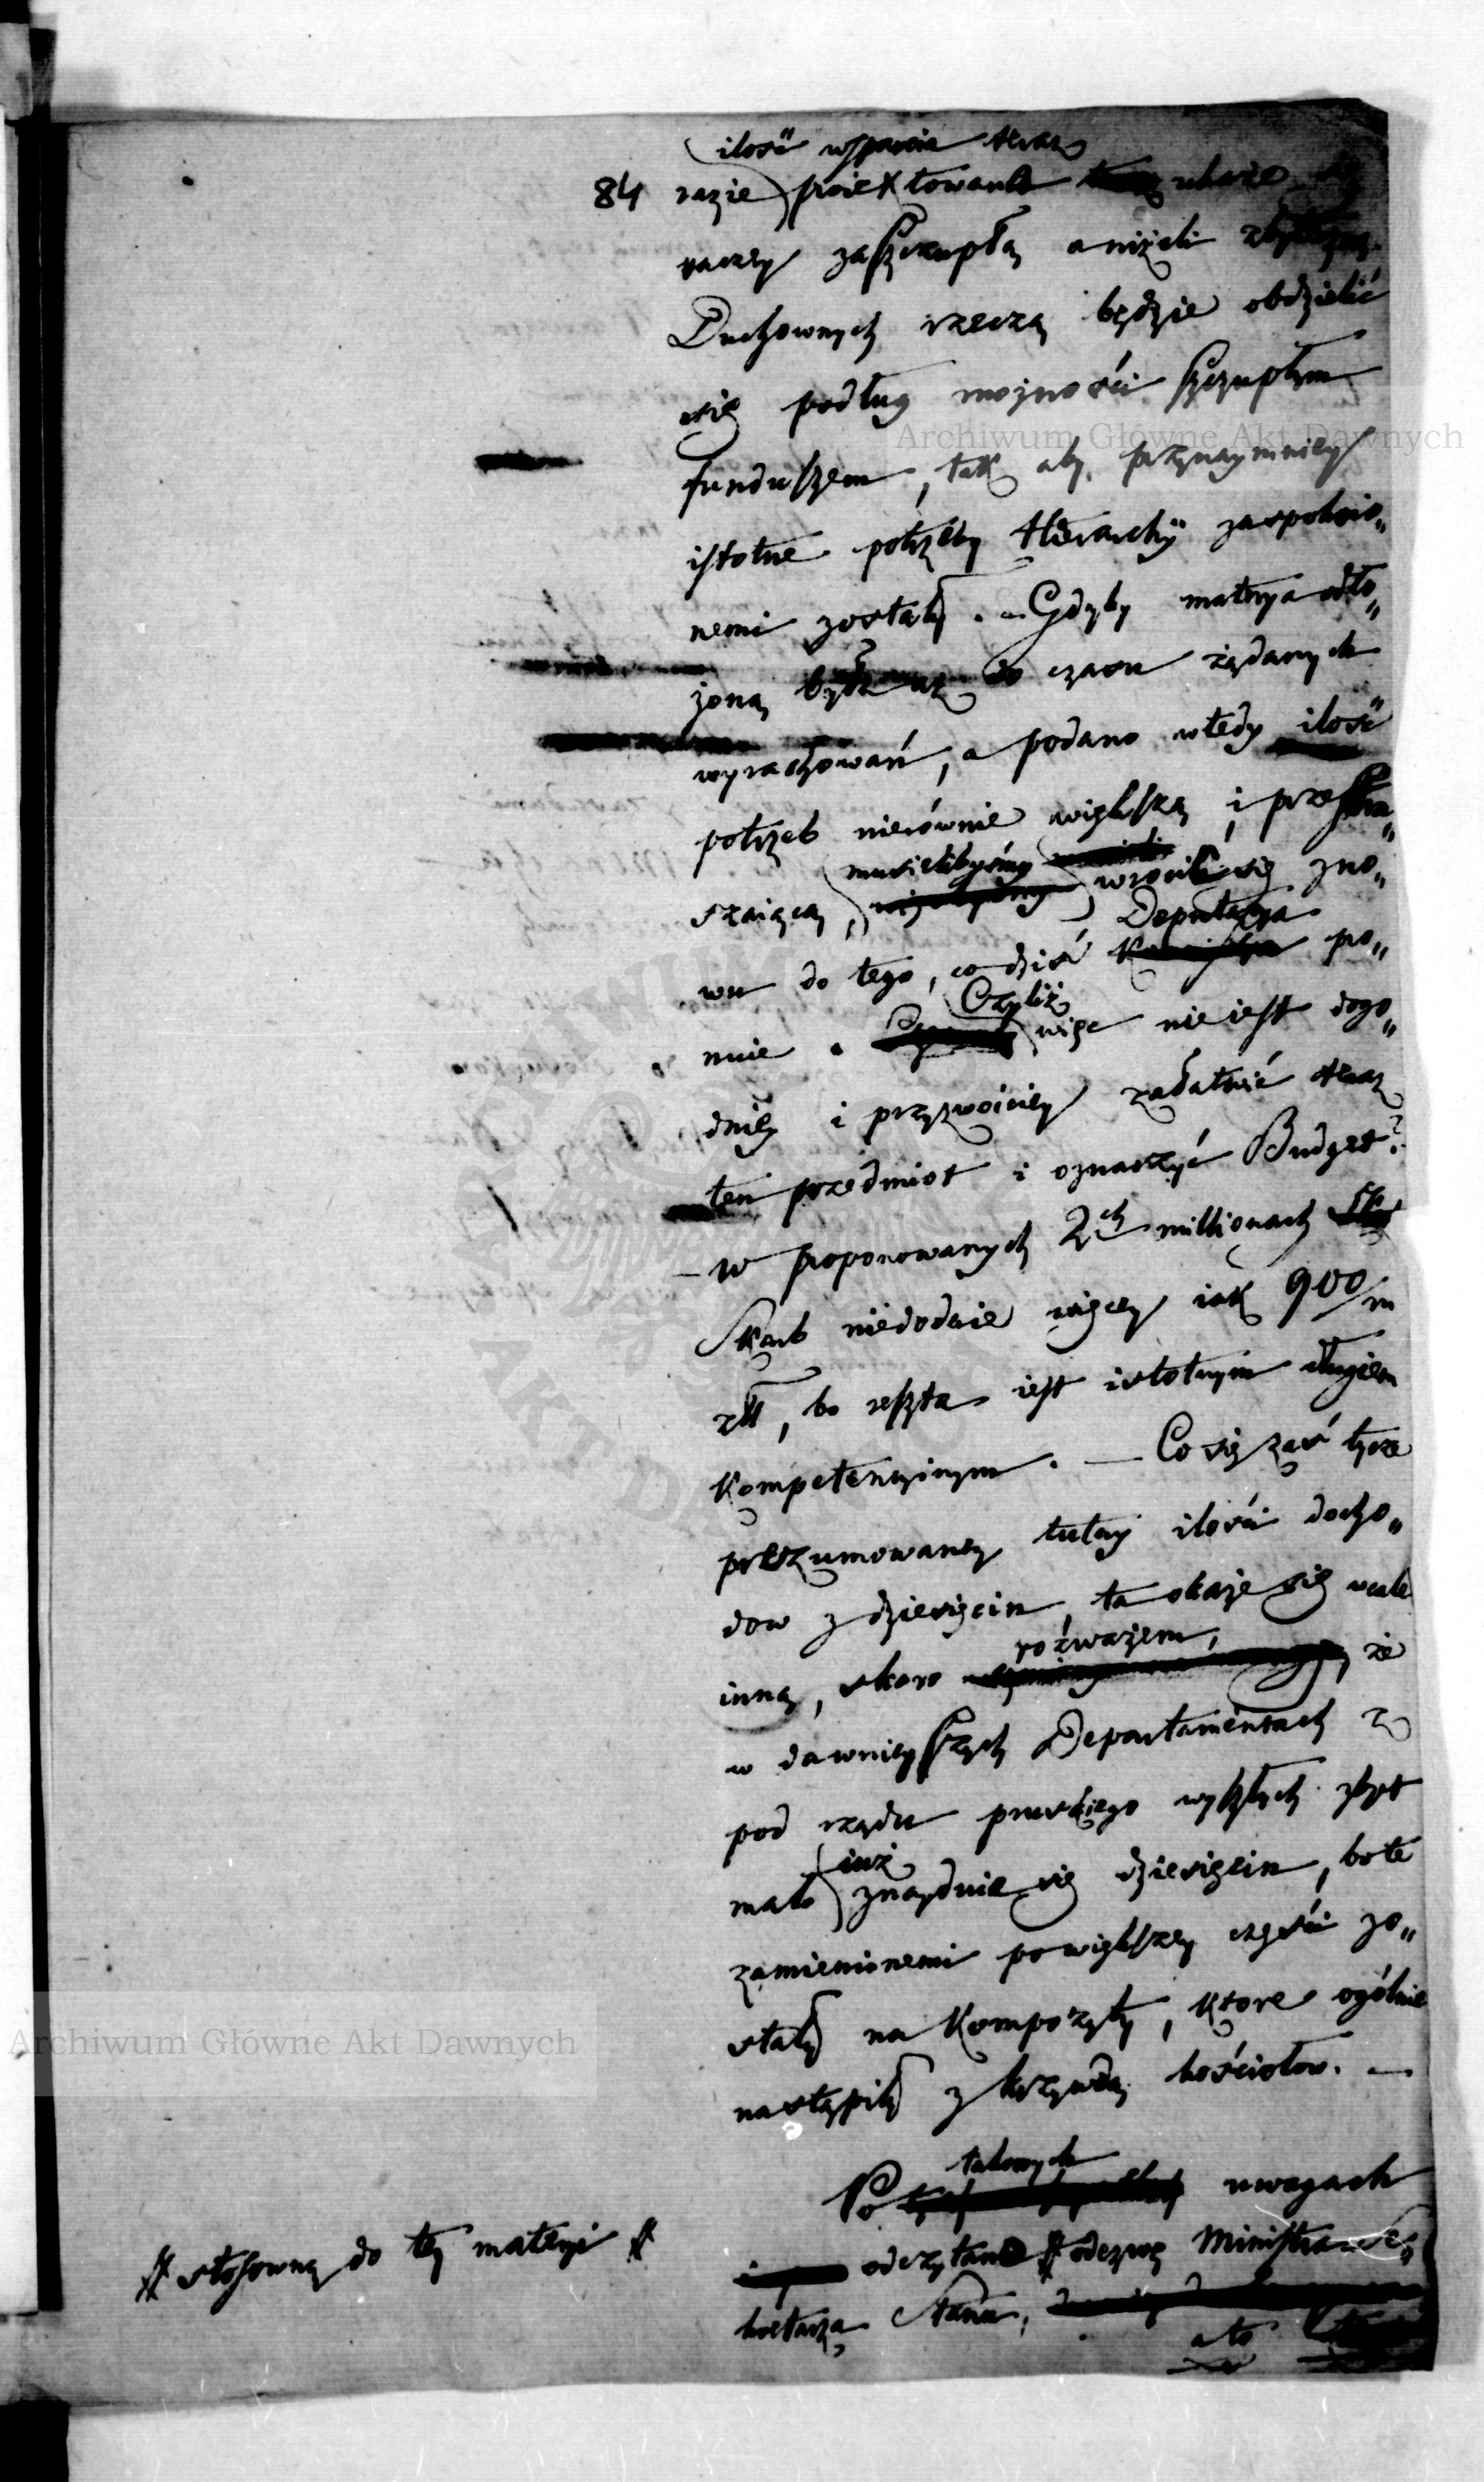 ilość wsparcia teraz
84 razie proiektowana ukaże się
raczey zaszczupłą aniżeli
Duchownych rzeczą będzie obdzielić
się podług możności szczupłym
funduszem, tak aby przynaymniey
istotne potrzeby Hierarchij zaspokoio„
nemi zostały. — Gdyby materya odło„
żoną była aż do czasu żądanych
wyrachowań, a podano wtedy ilość
potrzeb nierównie większą i przestra„
szaiącą, musielibyśmy wrocić się zno„
wu do tego, co dziś Deputacya po„
mnie. Czyliż więc nie iest dogo„
dniey i przyzwoiciey załatwić teraz
ten przedmiot i oznaczyć Budget?
— w proponowanych 2ch millionach
Skarb niedodaie więcey iak 900/m
złł, bo reszta iest istotnym długiem
kompetencyinym. — Co się zaś tycze
przezumowaney tutay ilości docho„
dow z dziesięcin, ta okaże się wcale
inną, skoro rozważem, że
w dawnieyszych Departamentach z
pod rządu pruskiego wyszłych zbyt
mało iuż znayduie się dziesięcin, bo te
zamienionemi powiększey części zo„
stały na Kompozyty, ktore ogólnie
nastąpiły z krzywdą kościołow. —
Po takowych uwagach
odczytano # odezwę Ministra Se„
kretarza Stanu,
a to
# stosowną do tey materyi #
Archiwum Główne Akt Dawnych
Archiwum Główne Akt Dawnych